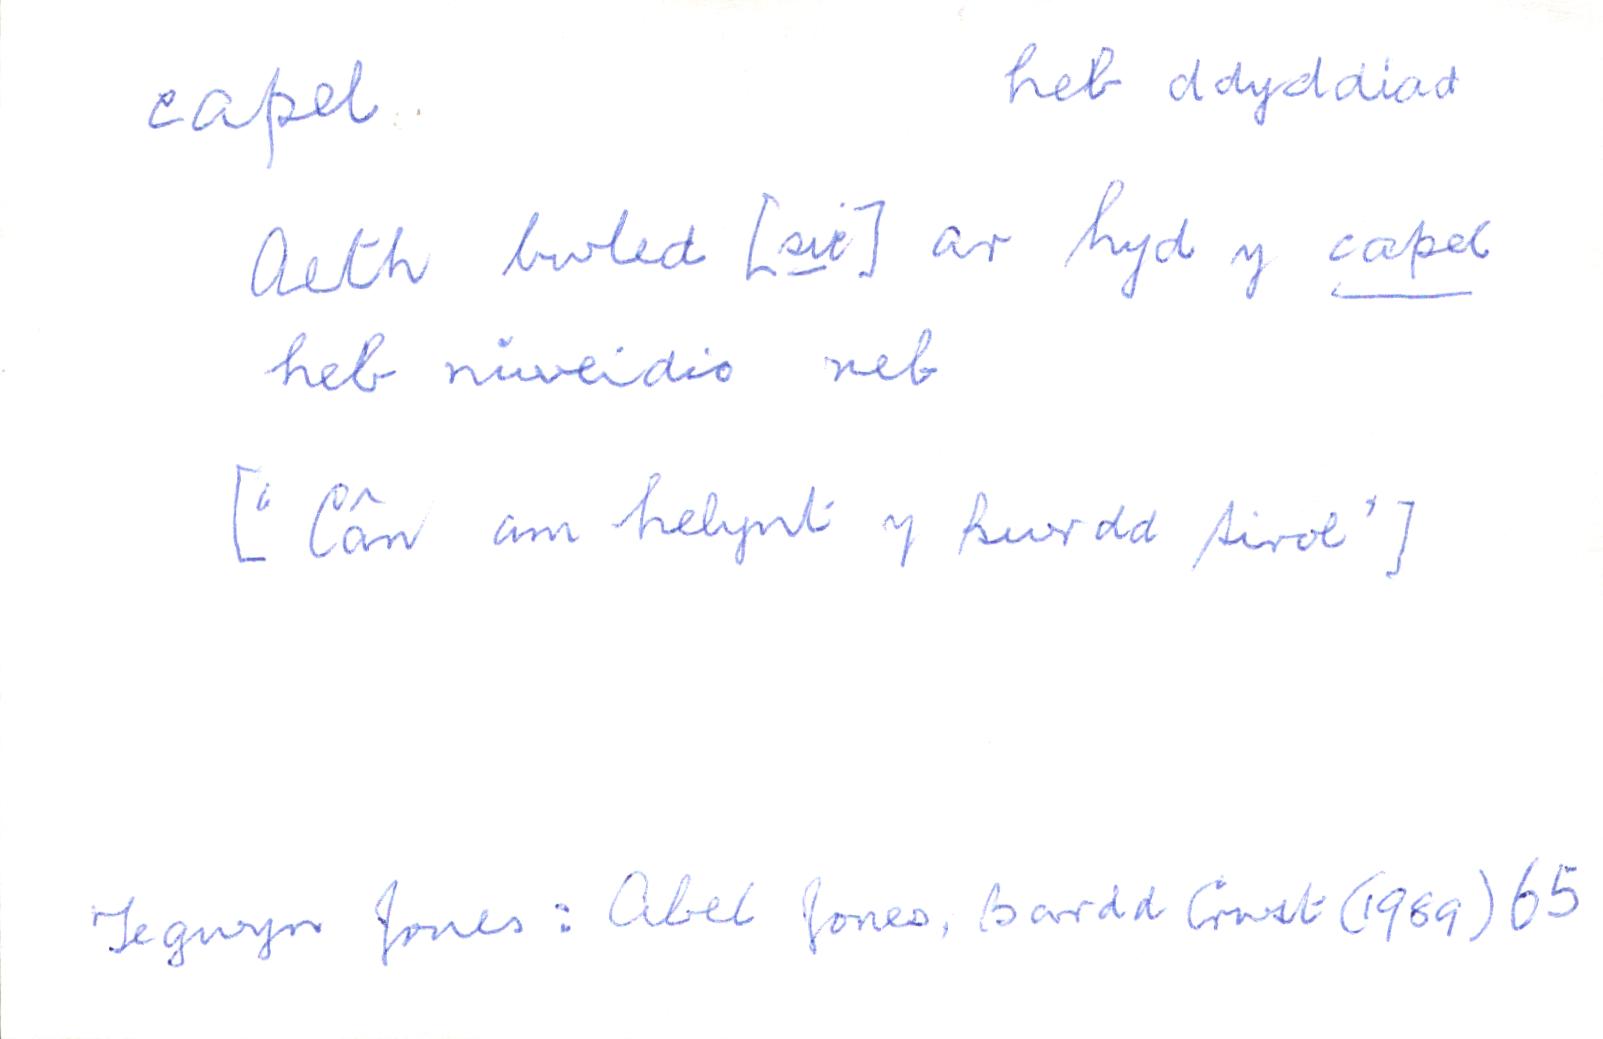 capel heb ddyddiad
Aeth bwled [sic] ar hyd y capel
heb niweidio neb
['Cân am helynt y bwrdd sirol']
Tegwyn Jones: Abel Jones, Bardd Crwst (1989) 65